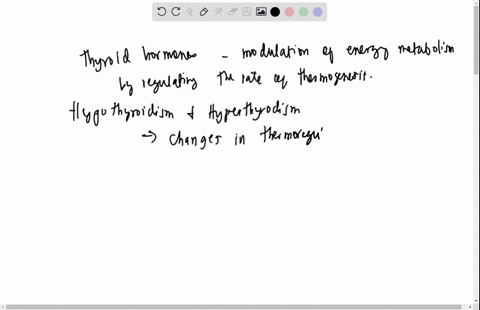 thyroid hormones - modulation of energy metabolism
by regulating the rate of thermogenesis.
Hypothyroidism & Hyperthyrodism
→ changes in thermoregu